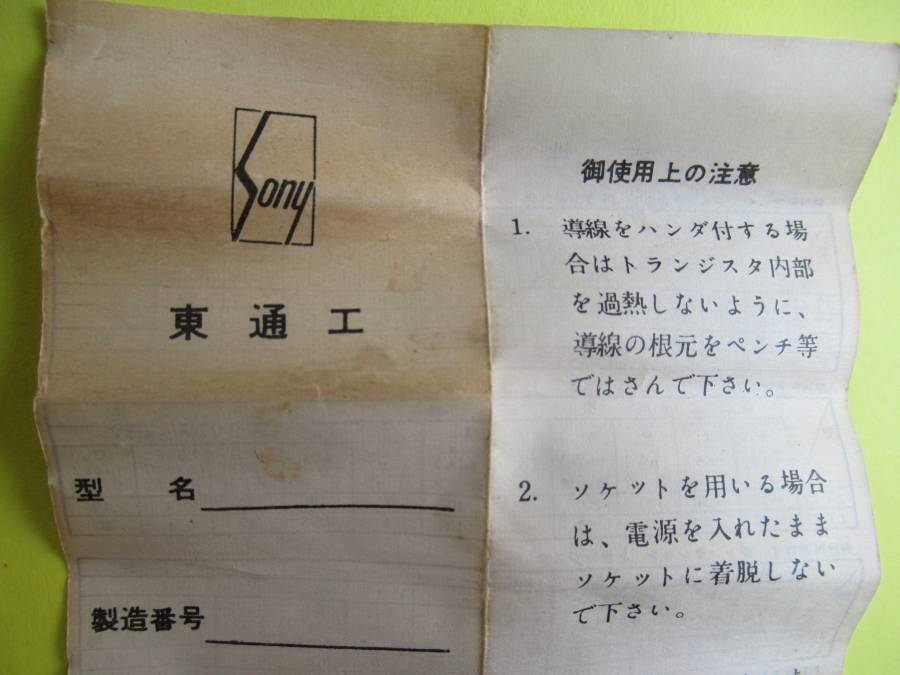 Sony
東通工
型名
製造番号
御使用上の注意
1. 導線をハンダ付する場
合はトランジスタ内部
を過熱しないように、
導線の根元をペンチ等
ではさんで下さい。
2. ソケットを用いる場合
は、電源を入れたまま
ソケットに着脱しない
で下さい。